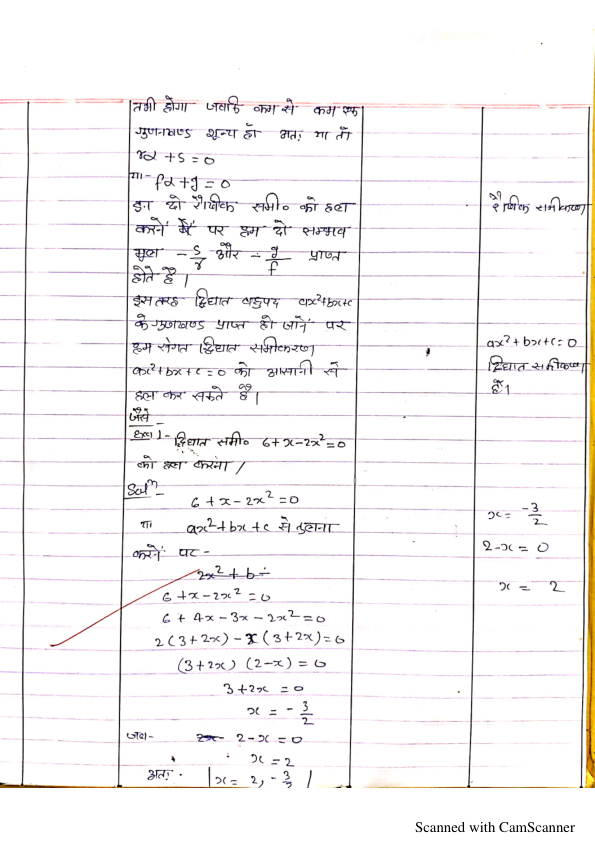 तभी होगा जबकि कम से कम एक
गुणनखण्ड शून्य हो अतः या तो
rα + s = 0
या- fα + g = 0
इन दो रैखिक समी० को हल
करने पर हम दो सम्भव
मूल - s/r और - g/f प्राप्त
होते है।
इस तरह द्विघात बहुपद ax²+bx+c
के गुणखण्ड प्राप्त हो जाने पर
हम संगत द्विघात समीकरण
ax²+bx+c=0 को आसानी से
हल कर सकते है।
जैसे -
Ex० 1- द्विघात समी० 6+x-2x²=0
को हल करना /
Solⁿ -
6 + x - 2x² = 0
या ax²+bx+c से तुलना
करने पर -
2x² + b ÷
6 + x - 2x² = 0
6 + 4x - 3x - 2x² = 0
2(3+2x) - x(3+2x) = 0
(3+2x) (2-x) = 0
3+2x = 0
x = - 3/2
जब- 2x 2-x = 0
x = 2
अतः x = 2, - 3/2
रैखिक समीकरण
ax²+bx+c=0
द्विघात समीकरण
है।
x = -3/2
2-x = 0
x = 2
Scanned with CamScanner